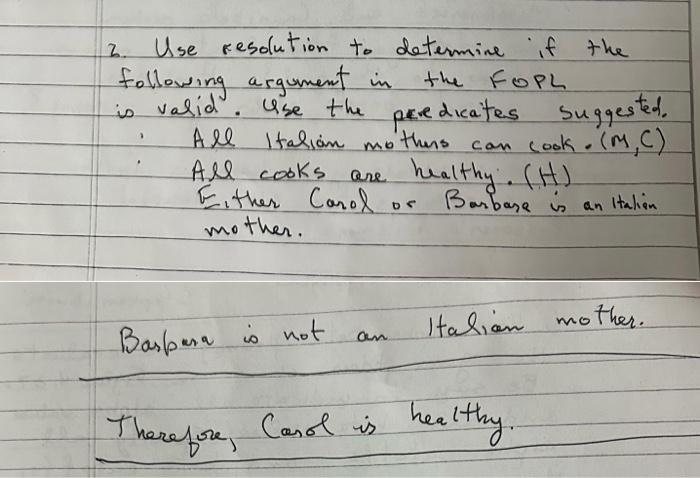 2. Use resolution to determine if the
following argument in the FOPL
is valid. Use the predicates suggested.
All Italian mothers can cook. (M, C)
All cooks are healthy. (H)
Either Carol or Barbara is an Italian
mother.
Barbara is not an Italian mother.
Therefore, Carol is healthy.